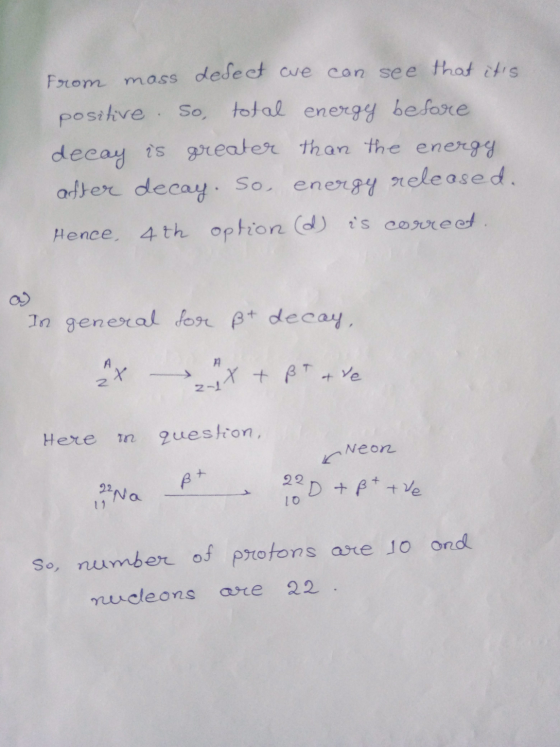 From mass defect we can see that it's
positive. So, total energy before
decay is greater than the energy
after decay. So, energy released.
Hence, 4th option (d) is correct.
a)
In general for β⁺ decay,
ᴬ_Z X ⟶ ᴬ_Z-1 X + β⁺ + νe
Here in question,
Neon
²²₁₁Na β⁺⟶ ²²₁₀D + β⁺ + νe
So, number of protons are 10 and
nucleons are 22.